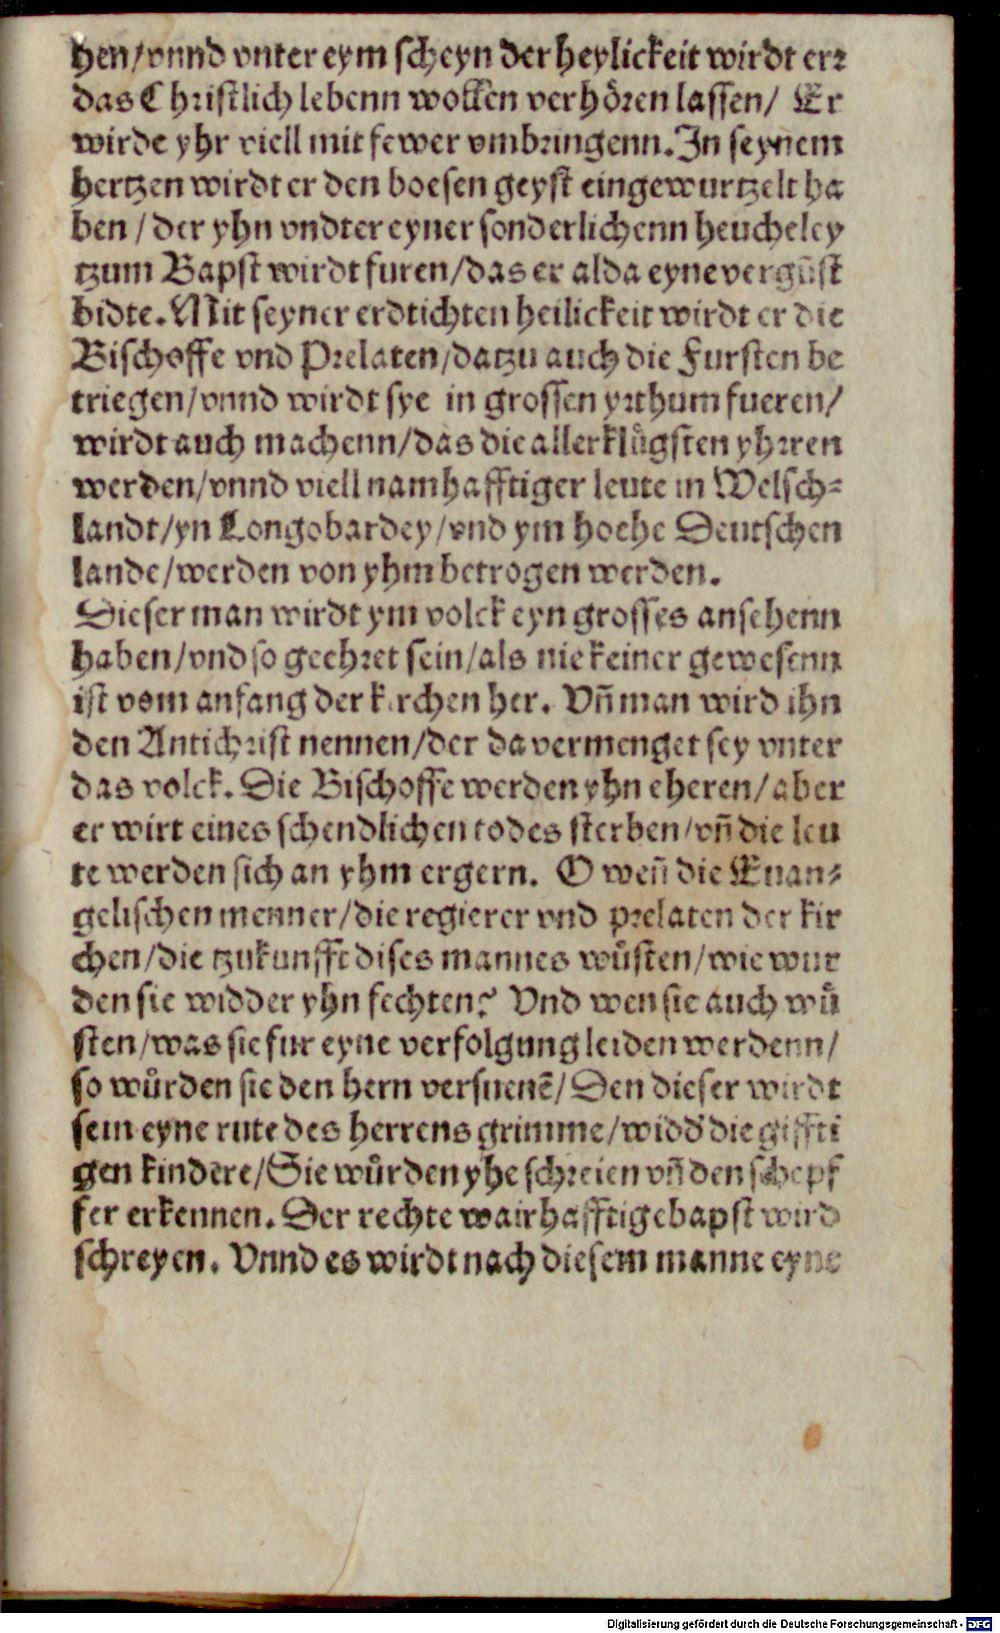 hen/vnnd vnter eym scheyn der heylickeit wirdt err
das Christlich lebenn wollen verhören lassen/ Er
wirde yhr viell mit fewer vmbringenn. In seynem
hertzen wirdt er den boesen geyst eingewurtzelt ha
ben / der yhn vndter eyner sonderlichenn heucheley
tzum Bapst wirdt furen/das er alda eyne vergūst
bidte. Mit seyner erdtichten heilickeit wirdt er die
Bischoffe vnd Prelaten/datzu auch die Fursten be
triegen/vnnd wirdt sye in grossen yrthum fueren/
wirdt auch machenn/das die allerklůgsten yhrren
werden/vnnd viell namhafftiger leute in Welsch-
landt/yn Longobardey/vnd ym hoehe Deutschen
lande/werden von yhm betrogen werden.
Dieser man wirdt ym volck eyn grosses ansehenn
haben/vnd so geehret sein/als nie keiner gewesenn
ist vom anfang der kirchen her. Vn̄ man wird ihn
den Antichrist nennen/der da vermenget sey vnter
das volck. Die Bischoffe werden yhn eheren/aber
er wirt eines schendlichen todes sterben/vn̄ die leu
te werden sich an yhm ergern. O wen̄ die Euan-
gelischen menner/die regierer vnd prelaten der kir
chen/die tzukunfft dises mannes wůsten/wie wur
den sie widder yhn fechten? Vnd wen sie auch wů
sten/was sie fur eyne verfolgung leiden werdenn/
so wůrden sie den hern versuenē/Den dieser wirdt
sein eyne rute des herrens grimme/widd' die giffti
gen kindere/Sie wůrden yhe schreien vn̄ den schepf
fer erkennen. Der rechte wairhafftige bapst wird
schreyen. Vnnd es wirdt nach diesem manne eyne
Digitalisierung gefördert durch die Deutsche Forschungsgemeinschaft - DFG